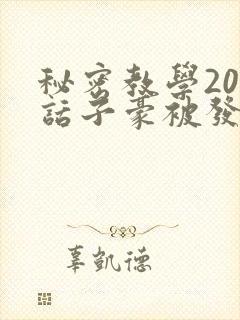 秘密教學20
話子豪被發
辜凱德